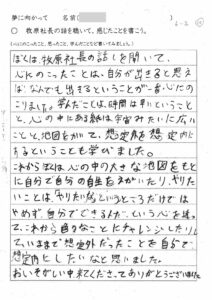 夢に向かって 名前(
○ 牧原社長の話を聴いて、感じたことを書こう。
(心にのこったこと、思ったこと、学んだことなど書いてみましょう。)
ぼくは、牧原社長の話しを聞いて、
心にのこったことは、自分が出きると思え
ば、なんでも出きるということが一番心にの
こりました。学んだことは、時間は
と、心の中にある
こと、地図をかいて、想定外を想定内に
するということも学びました。
これからぼくは、心の中の大きな地図をもと
に自分で自分の自生をえがいたり、やりた
いことは、やりたいな
やめず、自分でできるんだ、という心を持っ
て、これから自分なことにチャレンジしたり
して、いままで想定外だったことを自分で
想定内にしたいなと思いました。
おいそがしい中来てくださってありがとうございました